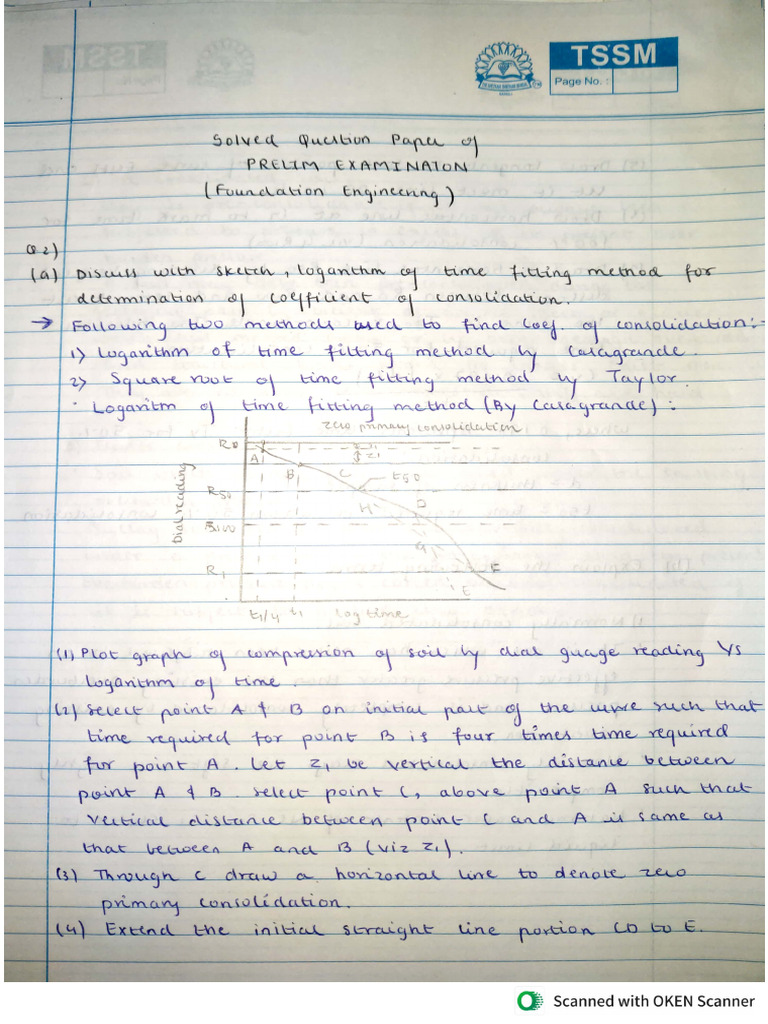 TSSM
Page No. :
Solved Question Paper of
PRELIM EXAMINATON
(Foundation Engineering)
Q2)
(a) Discuss with sketch, logarithm of time fitting method for
determination of coefficient of consolidation.
→ Following two methods used to find coef. of consolidation:-
1) Logarithm of time fitting method by Casagrande.
2) Square root of time fitting method by Taylor.
Logaritm of time fitting method (By Casagrande) :
zero primary consolidation
R0
Z1
Z1
A
B
C
t50
Dial reading
R50
H
D
R100
G
R1
F
E
t1/4 t1 log time
(1) Plot graph of compression of soil by dial guage reading Vs
logarithm of time.
(2) Select point A & B on initial part of the curve such that
time required for point B is four times time required
for point A. Let Z1 be vertical the distance between
point A & B. Select point C, above point A such that
vertical distance between point C and A is same as
that between A and B (viz Z1).
(3) Through C draw a horizontal line to denote zero
primary consolidation.
(4) Extend the initial straight line portion CD to E.
Scanned with OKEN Scanner